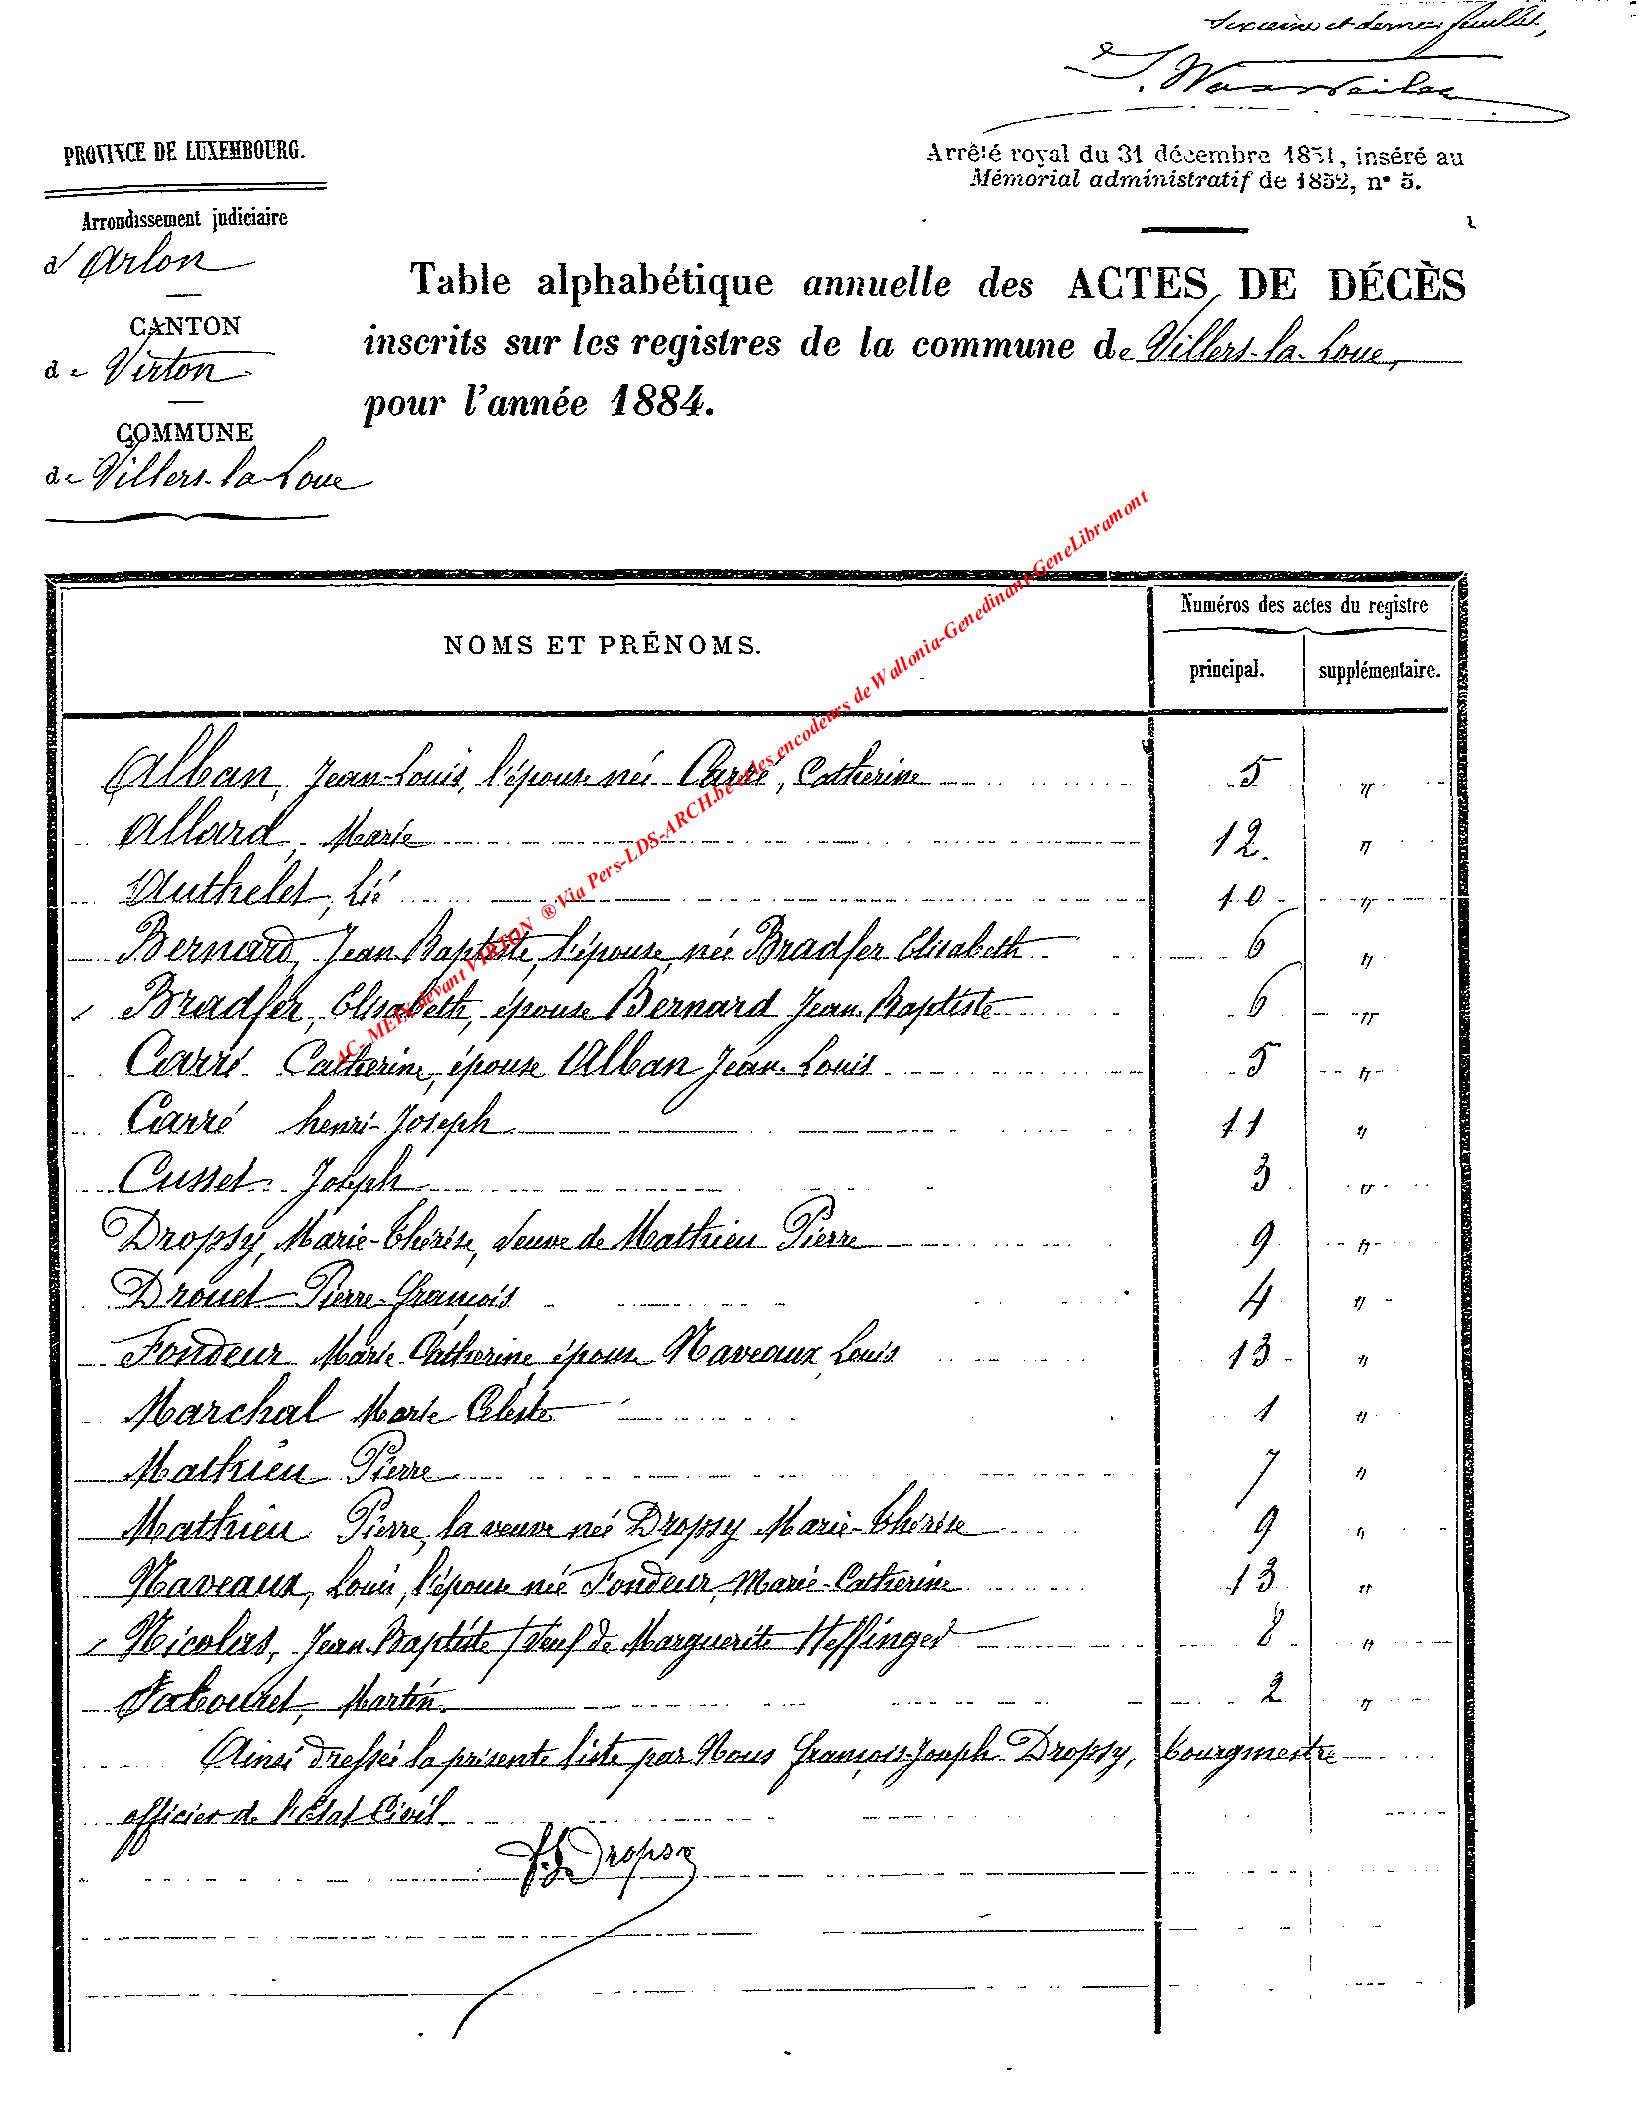 et dernier feuillet,
PROVINCE DE LUXEMBOURG.
Arrêté royal du 31 décembre 1851, inséré au
Mémorial administratif de 1852, n° 5.
Arrondissement judiciaire
d'Arlon
CANTON
de Virton
COMMUNE
de Villers-la-Loue
Table alphabétique annuelle des ACTES DE DÉCÈS
inscrits sur les registres de la commune de Villers-la-Loue,
pour l'année 1884.
AC- MEIX devant VIRTON ® Via Pers-LDS-ARCH.be et les encodeurs de Wallonia-Genedinant-GeneLibramont
NOMS ET PRÉNOMS. Numéros des actes du registre
principal. supplémentaire.
Alban, Jean-Louis, l'épouse née Carré, Catherine 5 "
Allard, Marie 12. "
Authelet, Lié 10 "
Bernard, Jean Baptiste, l'épouse née Bradfer Elisabeth 6 "
Bradfer, Elisabeth, épouse Bernard Jean Baptiste 6 "
Carré Catherine, épouse Alban Jean-Louis 5 "
Carré henri-Joseph 11 "
Cusset Joseph 3 "
Dropsy, Marie-Thérèse, veuve de Mathieu Pierre 9 "
Drouet Pierre-François 4 "
Fondeur Marie Catherine, épouse Naveaux, Louis 13 "
Marchal Marie Céleste 1 "
Mathieu Pierre 7 "
Mathieu Pierre, la veuve née Dropsy Marie-Thérèse 9 "
Naveaux, Louis, l'épouse née Fondeur, Marie-Catherine 13 "
Nicolas, Jean Baptiste, veuf de Marguerite Heffinger 8 "
Tabouret, Martin. 2 "
Ainsi dressée la présente liste par Nous François-Joseph Dropsy, bourgmestre
officier de l'Etat Civil
F. J. Dropsy